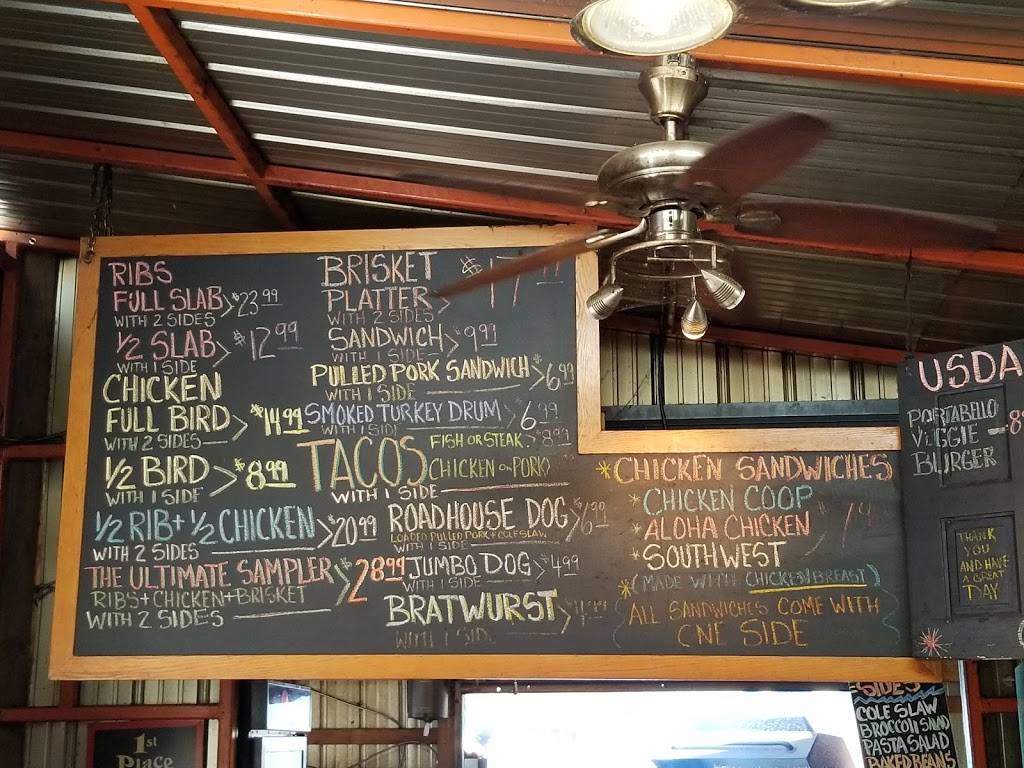 RIBS
FULL SLAB > $23.99
WITH 2 SIDES
1/2 SLAB > $12.99
WITH 1 SIDE
CHICKEN
FULL BIRD > $14.99
WITH 2 SIDES
1/2 BIRD > $8.99
WITH 1 SIDE
1/2 RIB + 1/2 CHICKEN > $20.99
WITH 2 SIDES
THE ULTIMATE SAMPLER > $28.99
RIBS + CHICKEN + BRISKET
WITH 2 SIDES
BRISKET
PLATTER
WITH 2 SIDES
SANDWICH > $9.99
WITH 1 SIDE
PULLED PORK SANDWICH > $6.99
WITH 1 SIDE
SMOKED TURKEY DRUM > $6.99
WITH 1 SIDE
TACOS
FISH OR STEAK > $8.99
CHICKEN OR PORK
WITH 1 SIDE
ROADHOUSE DOG > $6.99
LOADED PULLED PORK + COLESLAW
WITH 1 SIDE
JUMBO DOG > $4.99
WITH 1 SIDE
BRATWURST
WITH 1 SIDE
* CHICKEN SANDWICHES
* CHICKEN COOP
* ALOHA CHICKEN
* SOUTHWEST
* (MADE WITH CHICKEN BREAST)
ALL SANDWICHES COME WITH
ONE SIDE
USDA
PORTABELLO
VEGGIE
BURGER
THANK
YOU
AND HAVE
A GREAT
DAY
SIDES
COLE SLAW
BROCCOLI SALAD
PASTA SALAD
BAKED BEANS
1st
Place